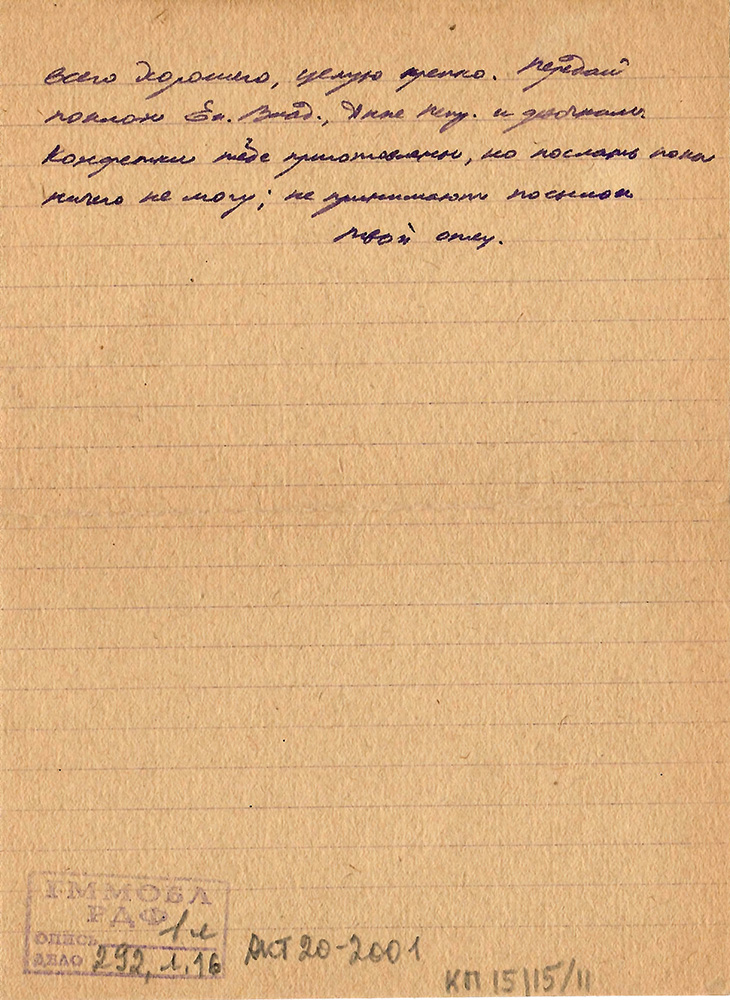 всего хорошего, целую крепко. Передай
поклон Ек. Влад., Анне Петр. и девочкам.
Конфетки тебе приготовлены, но послать пока
ничего не могу; не принимают посылок
твой отец.
ГММОБЛ
РДФ 1 л
ОПИСЬ
ДЕЛО 292, л. 16
АКТ 20-2001
КП 15|15/11